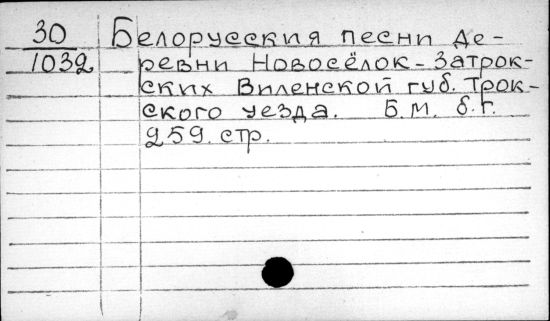 30
1032
Белорусския песни де-
ревни Новосёлок-Затрок-
ских Виленской губ. Трок-
ского уезда. Б.м. б.г.
259. стр.